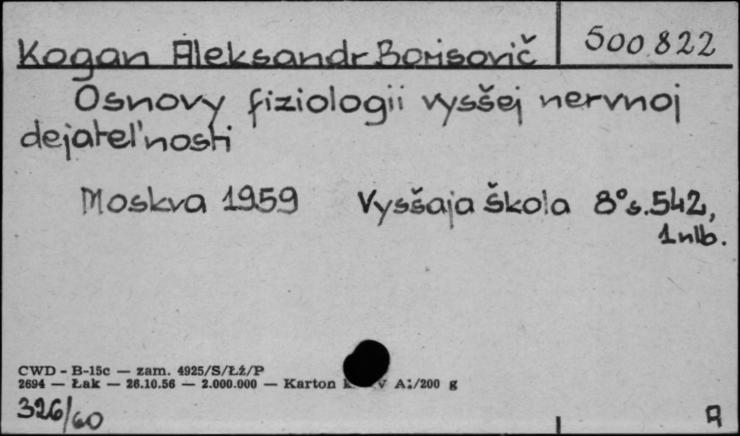 Kogan Aleksandr Borisovič 500.822
Osnovy fiziologii vysšej nervnoj
dejatel'nosti
Moskva 1959 Vysšaja škola 8° s. 542,
1 nlb.
CWD - B-15c — zam. 4925/S/Łź/P
2694 — Łak — 26.10.56 — 2.000.000 — Karton A1/200 g
326/60
A